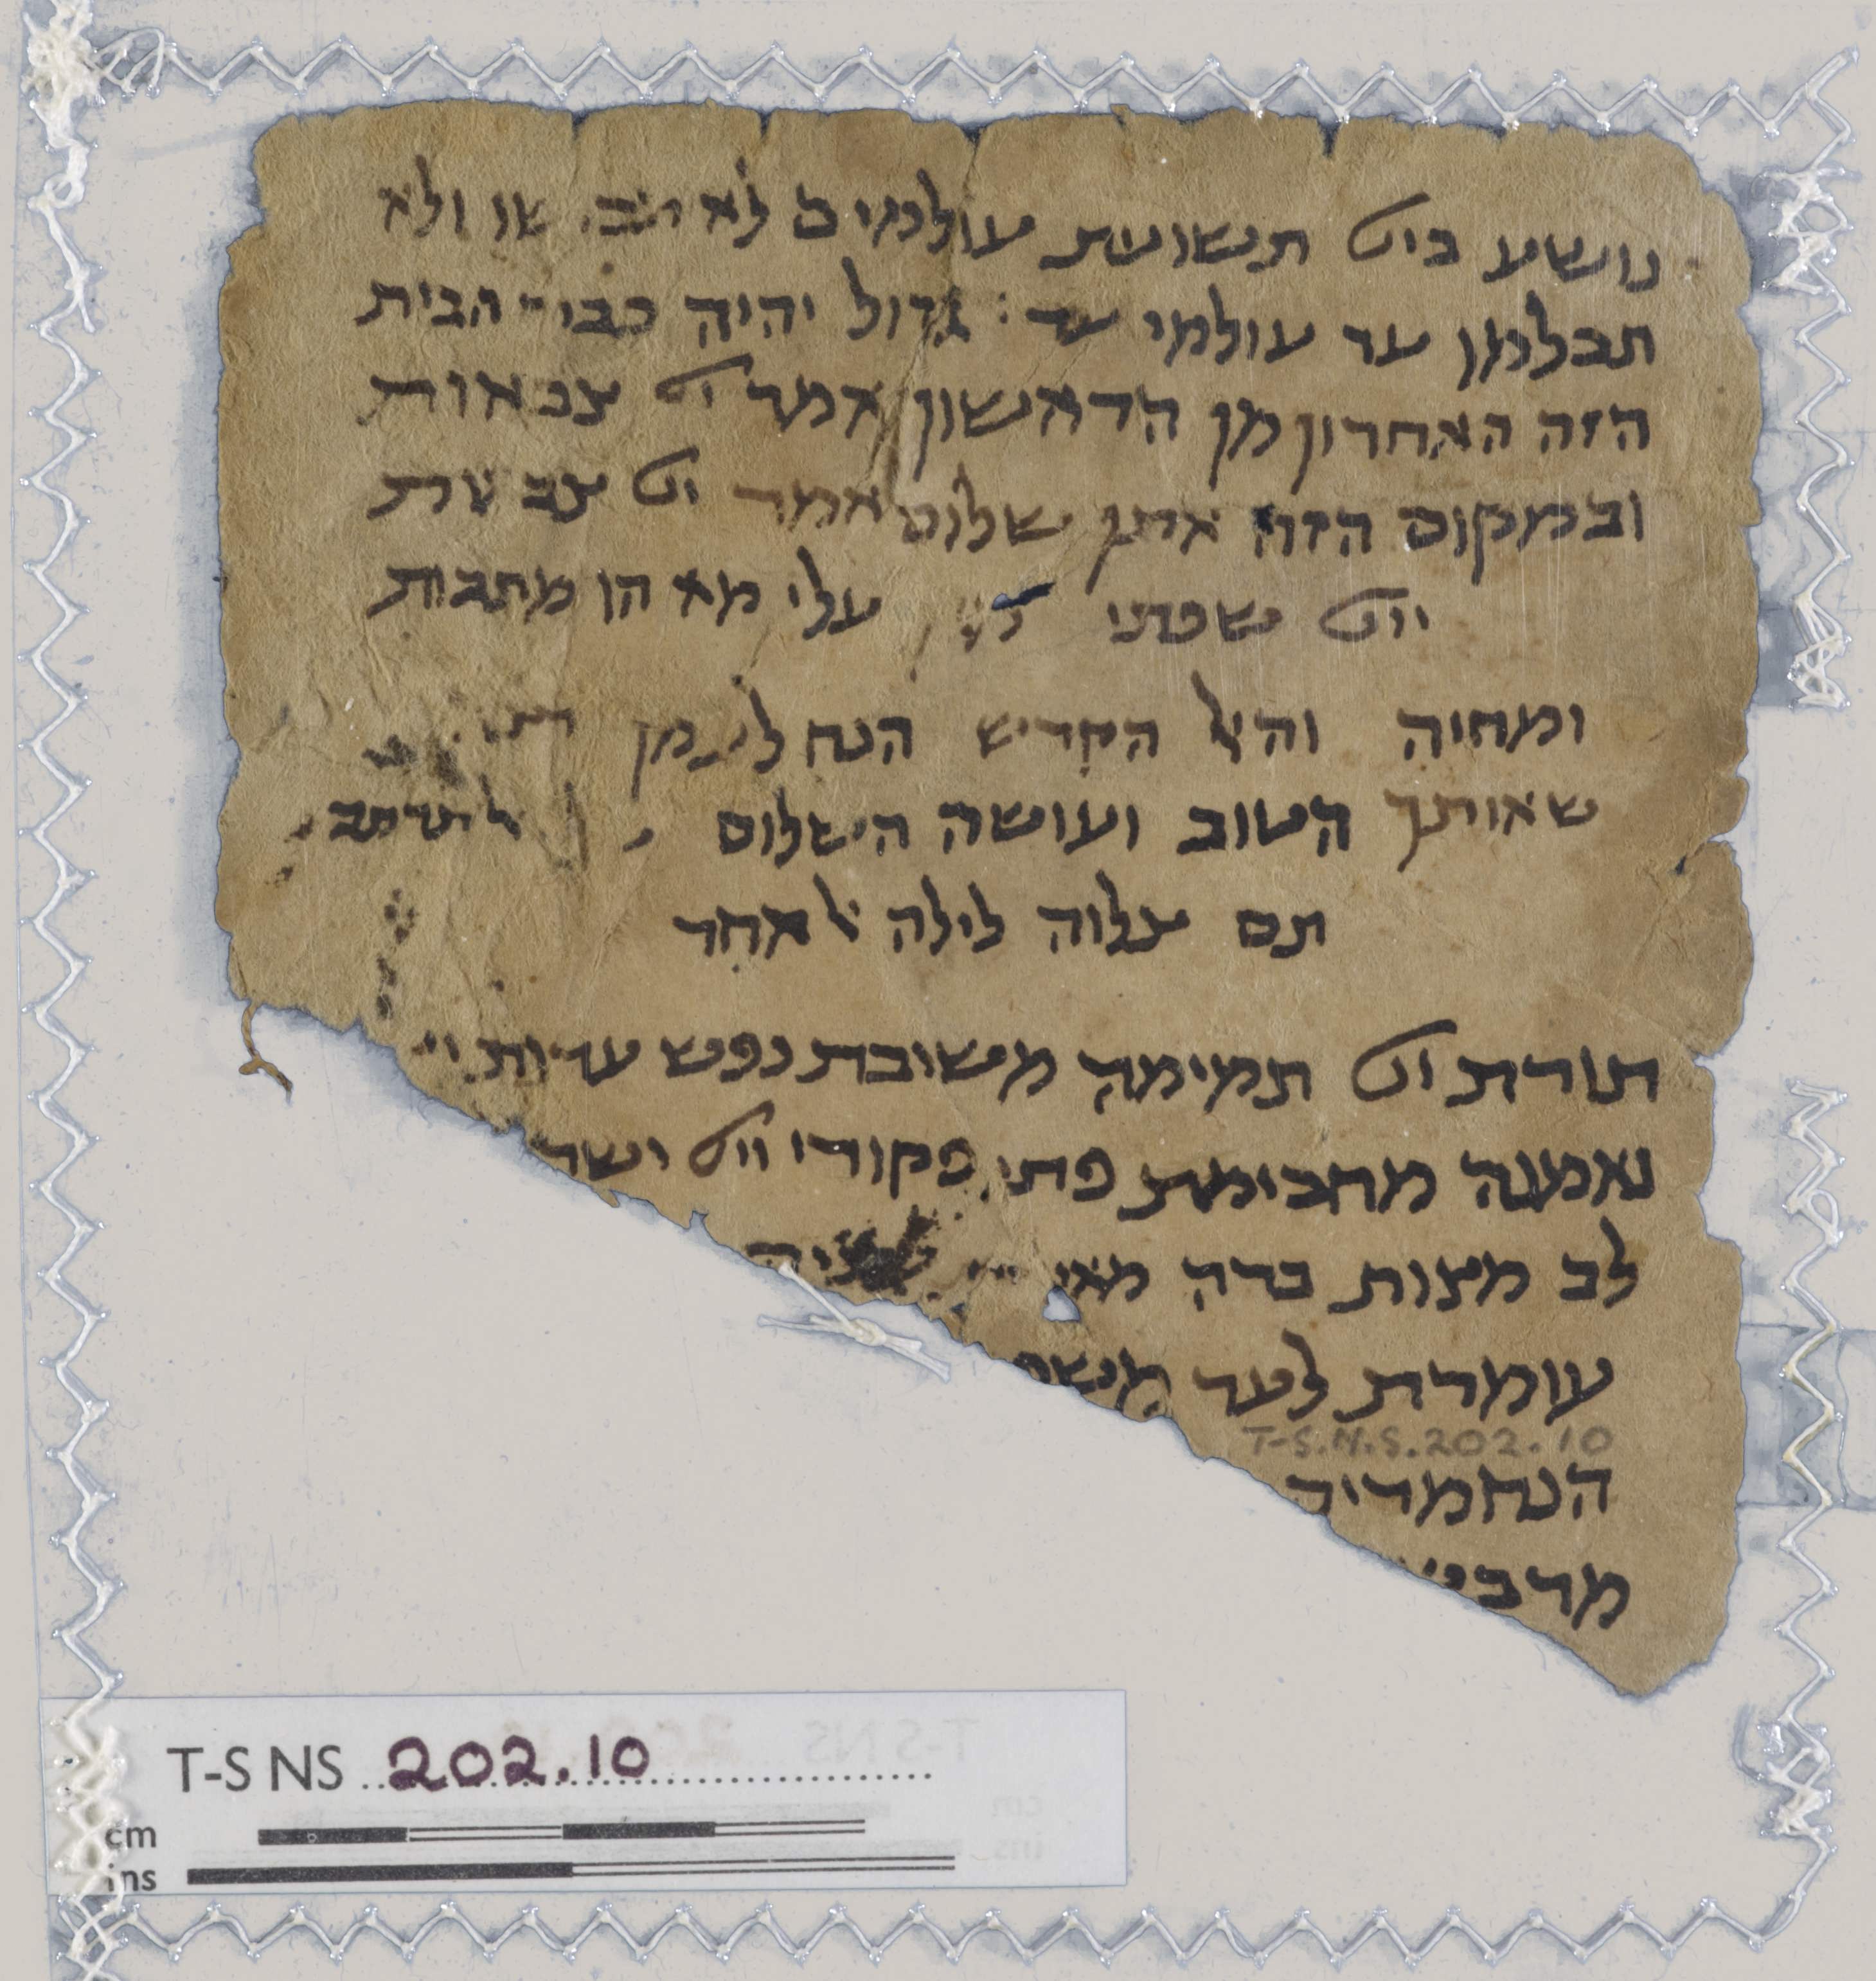 נושע בייי תשועת עולמים לא ולא
תכלמון עד עולמי עד : גדול יהיה כבוד הבית
הזה האחרון מן הראשון אמר ייי צבאות
ובמקום הזה אתן שלום אמר ייי צבאות
ייי שפטינו עלי מא הו מתבות
ומחיה והאל הקדוש הנה מן
שאותך הטוב ועושה השלום
תם צלוה לילה אלאחד
תורת ייי תמימה משיבת נפש עדות
נאמנה מחכימת פתי פקודי ייי ישר
לב מצות ברה
עומדת לעד
הנחמדים
T-S.N.S.202.10
T-S NS 202.10
cm
ins